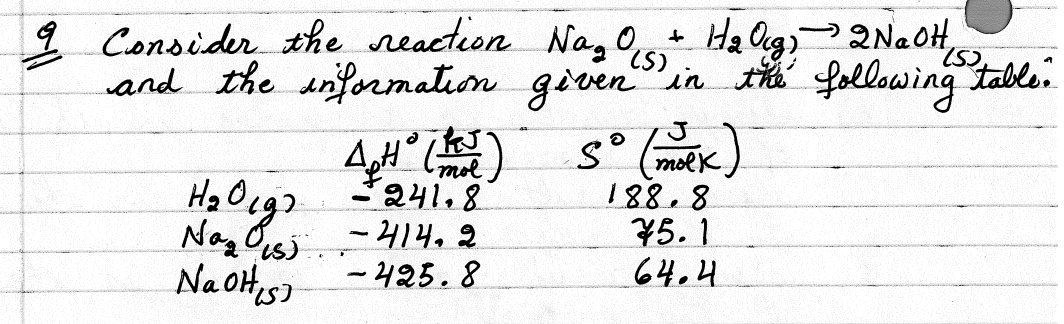 9 Consider the reaction Na₂O(s) + H₂O(g) → 2NaOH(s)
and the information given in the following table:
ΔfH° (kJ/mol) S° (J/molK)
H₂O(g) -241.8 188.8
Na₂O(s) -414.2 75.1
NaOH(s) -425.8 64.4